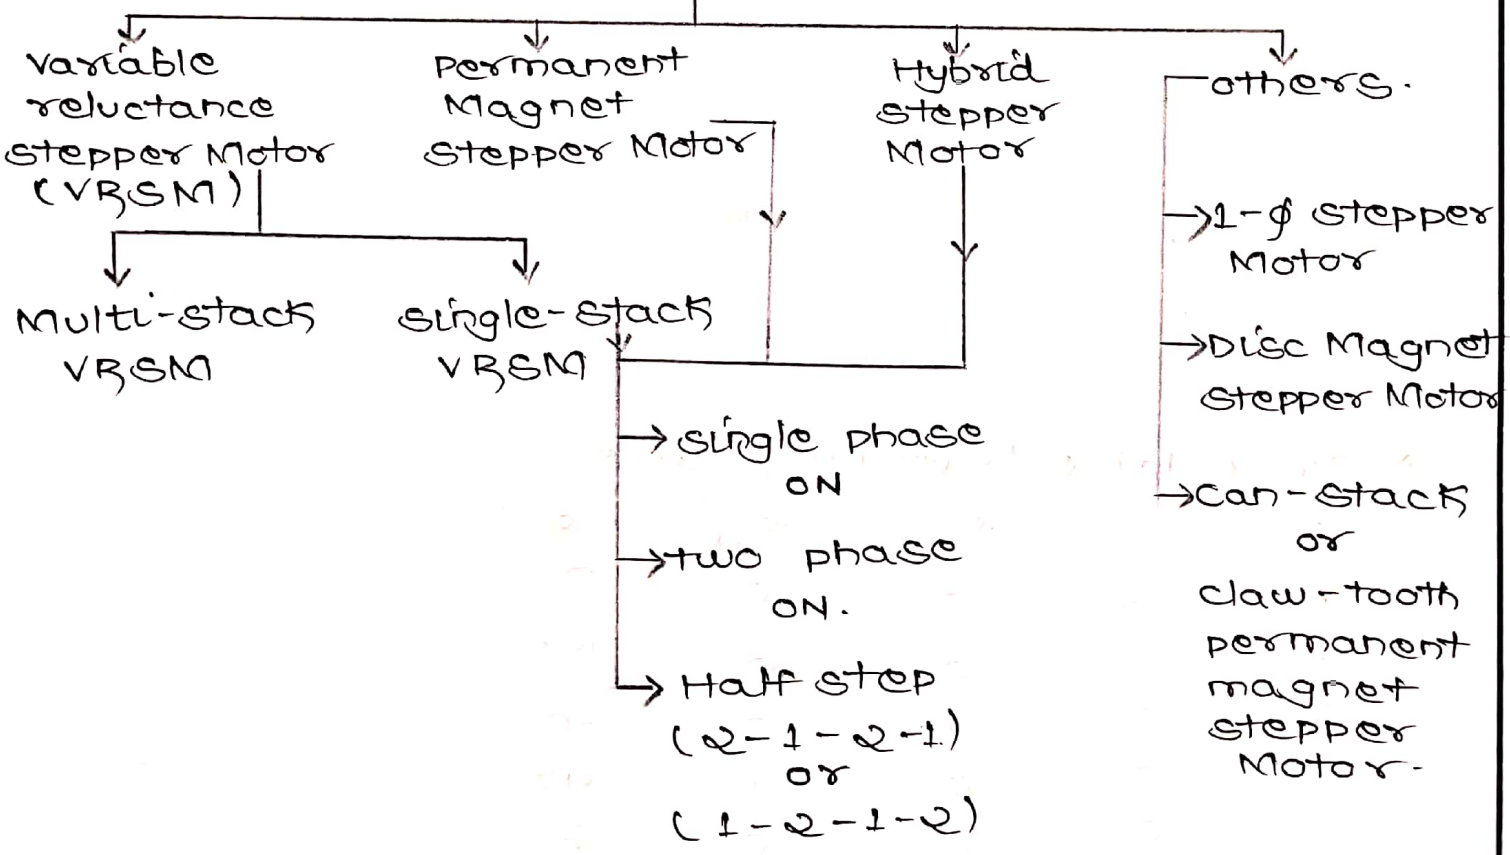 Variable
reluctance
stepper Motor
(VRSM)
Permanent
Magnet
Stepper Motor
Hybrid
stepper
Motor
others.
Multi-stack
VRSM
single-stack
VRSM
single phase
ON
two phase
ON.
Half step
(2-1-2-1)
or
(1-2-1-2)
1-ϕ stepper
Motor
Disc Magnet
stepper Motor
can-stack
or
claw-tooth
permanent
magnet
stepper
Motor.